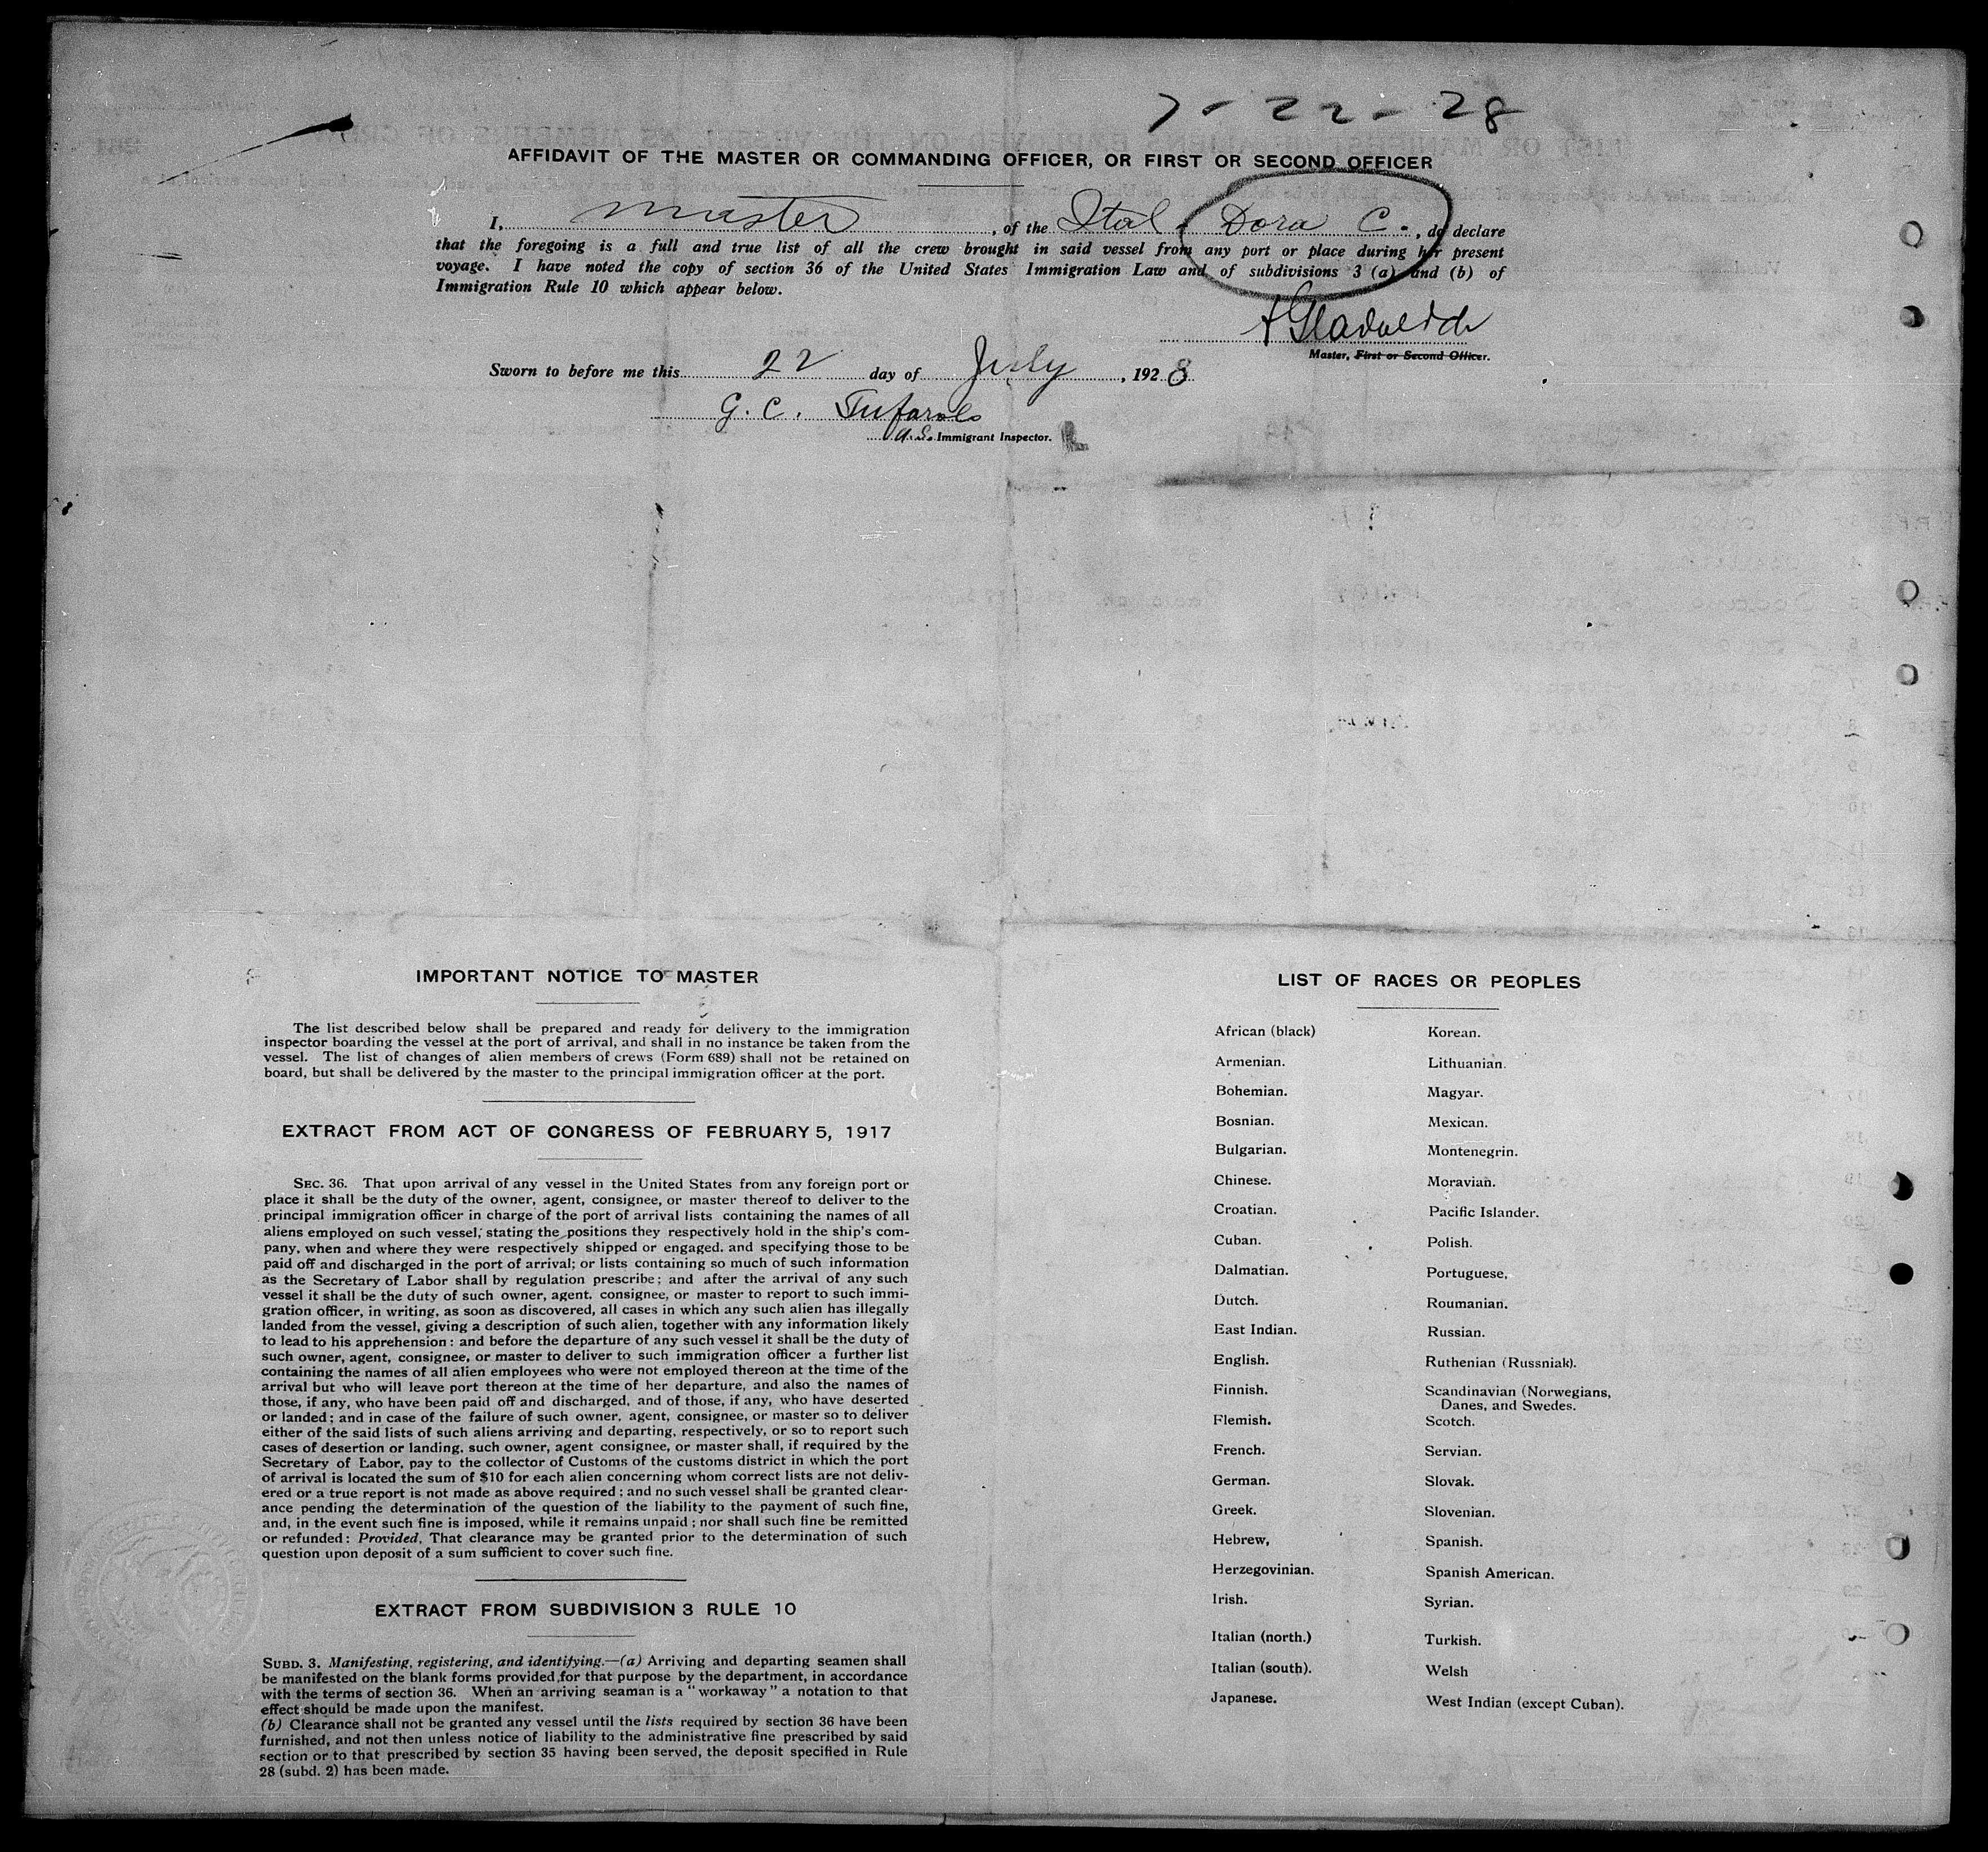 7-22-28
AFFIDAVIT OF THE MASTER OR COMMANDING OFFICER, OR FIRST OR SECOND OFFICER
I, master, of the Ital. Dora C., do declare
that the foregoing is a full and true list of all the crew brought in said vessel from any port or place during her present
voyage. I have noted the copy of section 36 of the United States Immigration Law and of subdivisions 3 (a) and (b) of
Immigration Rule 10 which appear below.
Master, First or Second Officer.
Sworn to before me this 22 day of July, 1928
G. C.
U.S. Immigrant Inspector.
IMPORTANT NOTICE TO MASTER
The list described below shall be prepared and ready for delivery to the immigration
inspector boarding the vessel at the port of arrival, and shall in no instance be taken from the
vessel. The list of changes of alien members of crews (Form 689) shall not be retained on
board, but shall be delivered by the master to the principal immigration officer at the port.
EXTRACT FROM ACT OF CONGRESS OF FEBRUARY 5, 1917
SEC. 36. That upon arrival of any vessel in the United States from any foreign port or
place it shall be the duty of the owner, agent, consignee, or master thereof to deliver to the
principal immigration officer in charge of the port of arrival lists containing the names of all
aliens employed on such vessel, stating the positions they respectively hold in the ship's com-
pany, when and where they were respectively shipped or engaged, and specifying those to be
paid off and discharged in the port of arrival; or lists containing so much of such information
as the Secretary of Labor shall by regulation prescribe; and after the arrival of any such
vessel it shall be the duty of such owner, agent, consignee, or master to report to such immi-
gration officer, in writing, as soon as discovered, all cases in which any such alien has illegally
landed from the vessel, giving a description of such alien, together with any information likely
to lead to his apprehension: and before the departure of any such vessel it shall be the duty of
such owner, agent, consignee, or master to deliver to such immigration officer a further list
containing the names of all alien employees who were not employed thereon at the time of the
arrival but who will leave port thereon at the time of her departure, and also the names of
those, if any, who have been paid off and discharged, and of those, if any, who have deserted
or landed; and in case of the failure of such owner, agent, consignee, or master so to deliver
either of the said lists of such aliens arriving and departing, respectively, or so to report such
cases of desertion or landing, such owner, agent consignee, or master shall, if required by the
Secretary of Labor, pay to the collector of Customs of the customs district in which the port
of arrival is located the sum of $10 for each alien concerning whom correct lists are not deliv-
ered or a true report is not made as above required; and no such vessel shall be granted clear-
ance pending the determination of the question of the liability to the payment of such fine,
and, in the event such fine is imposed, while it remains unpaid; nor shall such fine be remitted
or refunded: Provided, That clearance may be granted prior to the determination of such
question upon deposit of a sum sufficient to cover such fine.
EXTRACT FROM SUBDIVISION 3 RULE 10
SUBD. 3. Manifesting, registering, and identifying.—(a) Arriving and departing seamen shall
be manifested on the blank forms provided for that purpose by the department, in accordance
with the terms of section 36. When an arriving seaman is a "workaway" a notation to that
effect should be made upon the manifest.
(b) Clearance shall not be granted any vessel until the lists required by section 36 have been
furnished, and not then unless notice of liability to the administrative fine prescribed by said
section or to that prescribed by section 35 having been served, the deposit specified in Rule
28 (subd. 2) has been made.
LIST OF RACES OR PEOPLES
African (black)
Armenian.
Bohemian.
Bosnian.
Bulgarian.
Chinese.
Croatian.
Cuban.
Dalmatian.
Dutch.
East Indian.
English.
Finnish.
Flemish.
French.
German.
Greek.
Hebrew,
Herzegovinian.
Irish.
Italian (north.)
Italian (south).
Japanese.
Korean.
Lithuanian.
Magyar.
Mexican.
Montenegrin.
Moravian.
Pacific Islander.
Polish.
Portuguese,
Roumanian.
Russian.
Ruthenian (Russniak).
Scandinavian (Norwegians,
Danes, and Swedes.
Scotch.
Servian.
Slovak.
Slovenian.
Spanish.
Spanish American.
Syrian.
Turkish.
Welsh
West Indian (except Cuban).